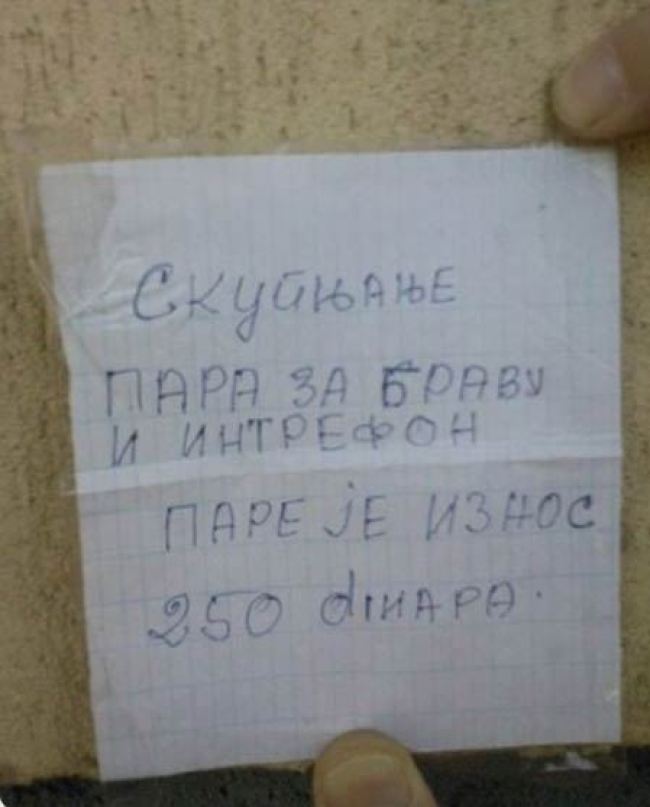 Скупњање
ПАРА ЗА БРАВУ
И ИНТРЕФОН
ПАРЕ ЈЕ ИЗНОС
250 dINAPA.